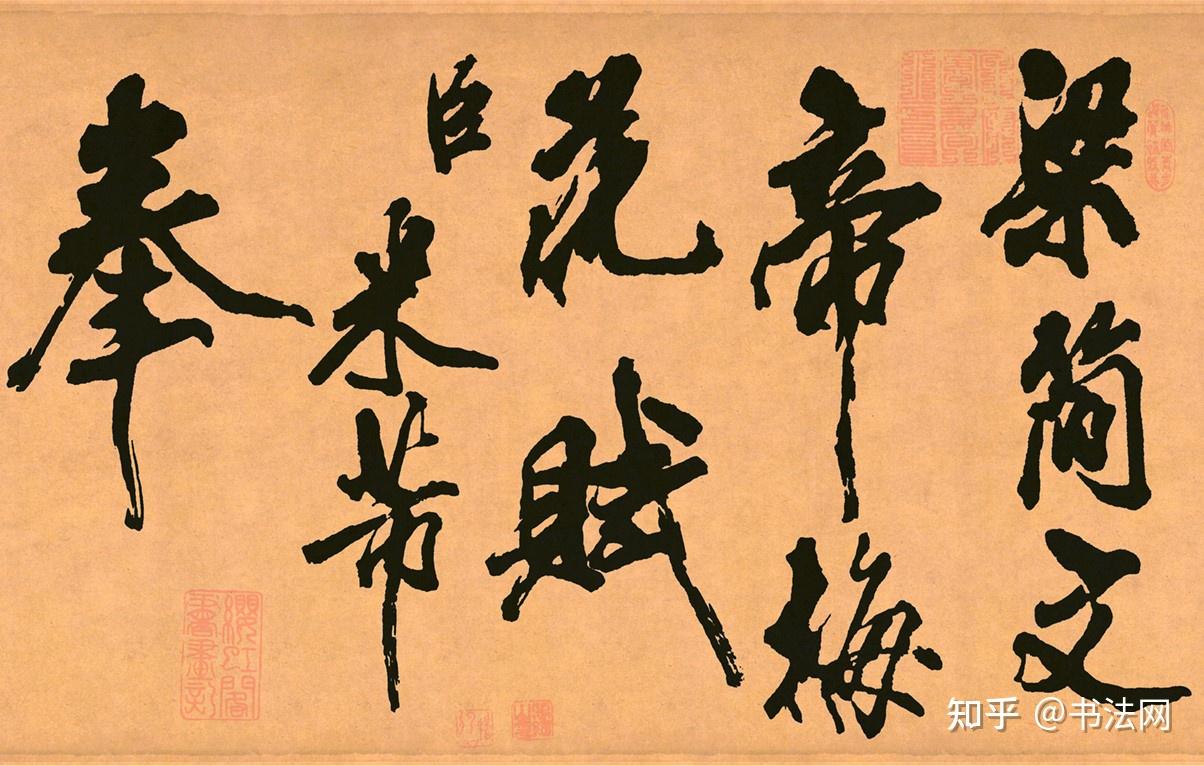 梁简文
帝梅
花赋
臣米芾
奉
知乎 @书法网